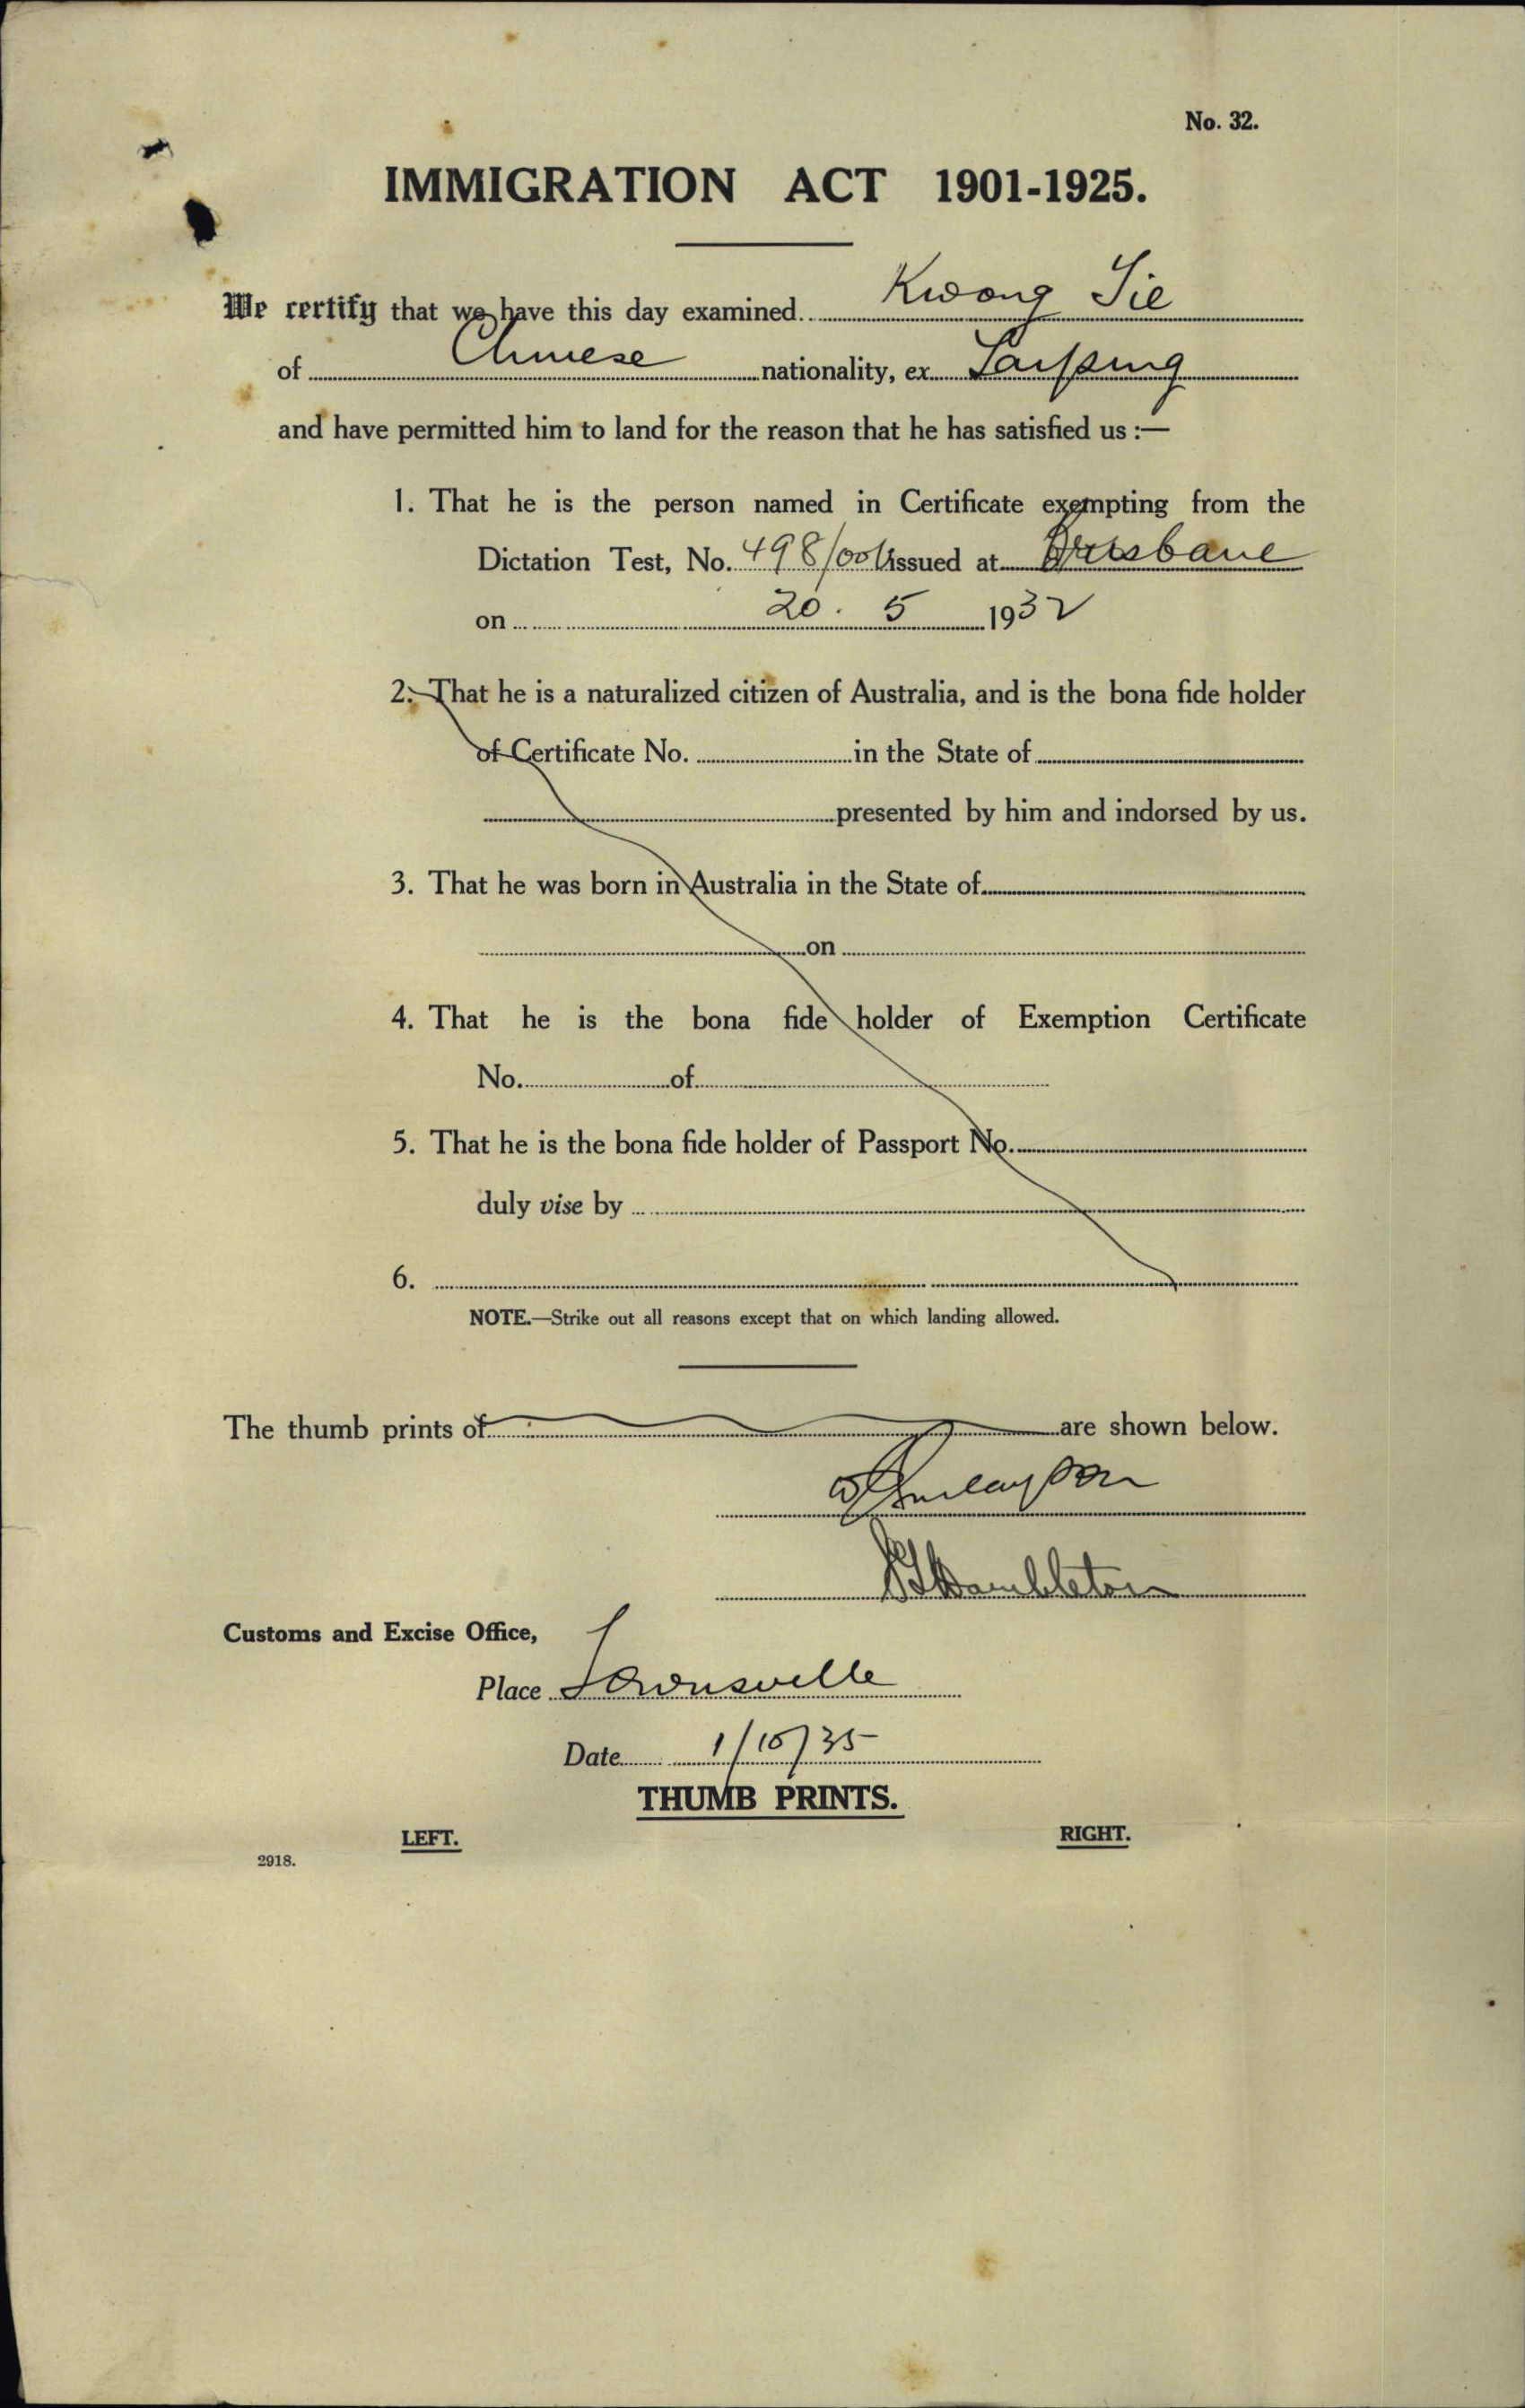 No. 32.
IMMIGRATION ACT 1901-1925.
We certify that we have this day examined Kwong Sie
of Chinese nationality, ex Taiping
and have permitted him to land for the reason that he has satisfied us :—
1. That he is the person named in Certificate exempting from the
Dictation Test, No. 498/001 issued at Brisbane
on 20. 5 1932
2. That he is a naturalized citizen of Australia, and is the bona fide holder
of Certificate No. in the State of
presented by him and indorsed by us.
3. That he was born in Australia in the State of
on
4. That he is the bona fide holder of Exemption Certificate
No. of
5. That he is the bona fide holder of Passport No.
duly vise by
6.
NOTE.—Strike out all reasons except that on which landing allowed.
The thumb prints of are shown below.
Hambleton
Customs and Excise Office,
Place Townsville
Date 1/10/35
THUMB PRINTS.
LEFT. RIGHT.
2918.